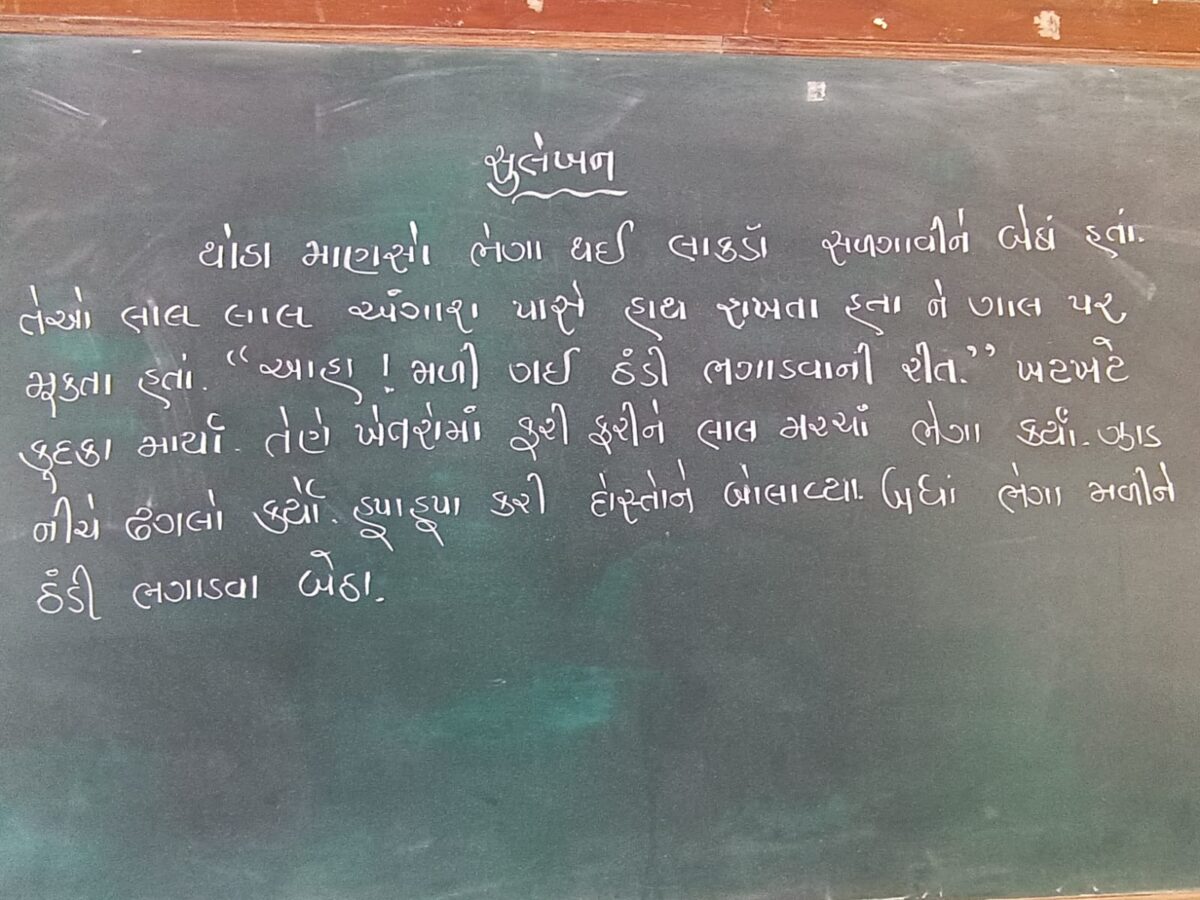 સુલેખન
થોડા માણસો ભેગા થઈ લાકડાં સળગાવીને બેઠાં હતાં.
તેઓ લાલ લાલ અંગારા પાસે હાથ રાખતા હતા ને ગાલ પર
મૂકતા હતાં. “આહા! મળી ગઈ ઠંડી ભગાડવાની રીત.” ખટખટે
કુદકા માર્યા. તેણે ખેતરોમાં ફરી ફરીને લાલ મરચાં ભેગા કર્યાં. ઝાડ
નીચે ઢગલો કર્યો. હૂપાહૂપ કરી દોસ્તોને બોલાવ્યા. બધાં ભેગા મળીને
ઠંડી ભગાડવા બેઠા.